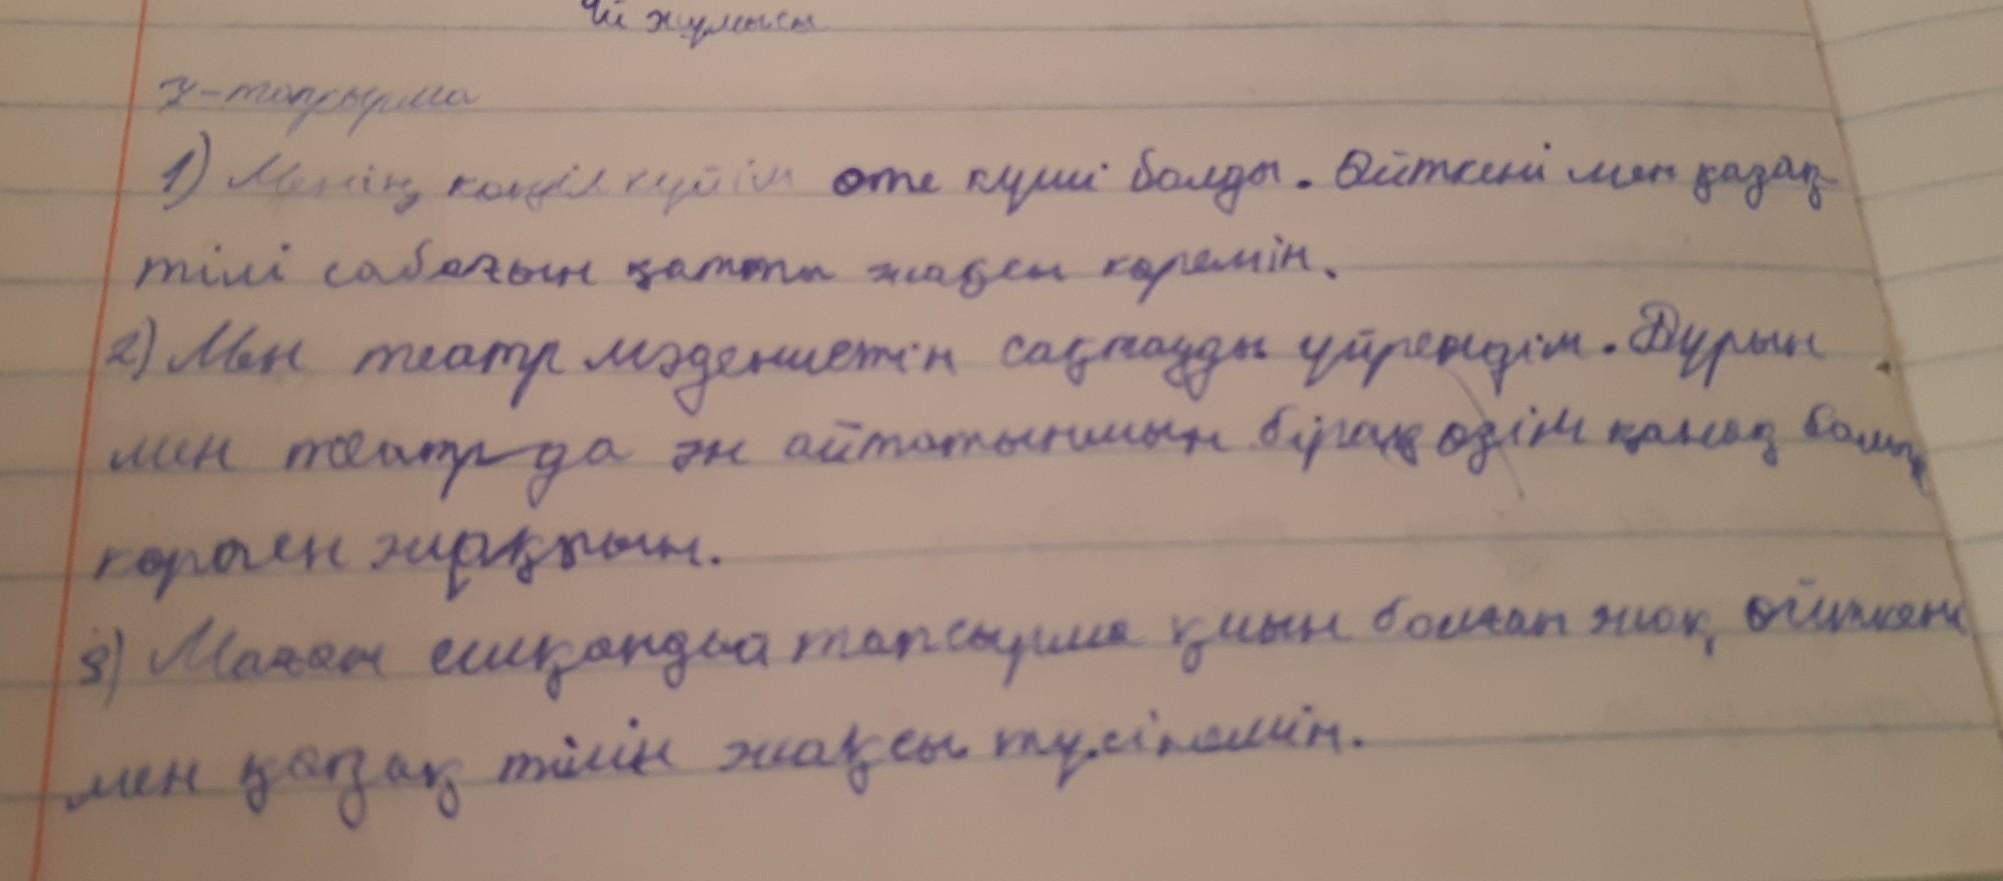 Үй жұмысы
7-тапсырма
1) Менің көңіл күйім өте күші болды. Өйткені мен қазақ
тілі сабағын қатты жақсы көремін.
2) Мен театр мәдениетін сақтауды үйрендім. Бұрын
мен театрда ән айтатынмын бірақ өзім қонақ болып
көрген жоқпын.
3) Маған ешқандай тапсырма қиын болған жоқ, өйткені
мен қазақ тілін жақсы түсінемін.